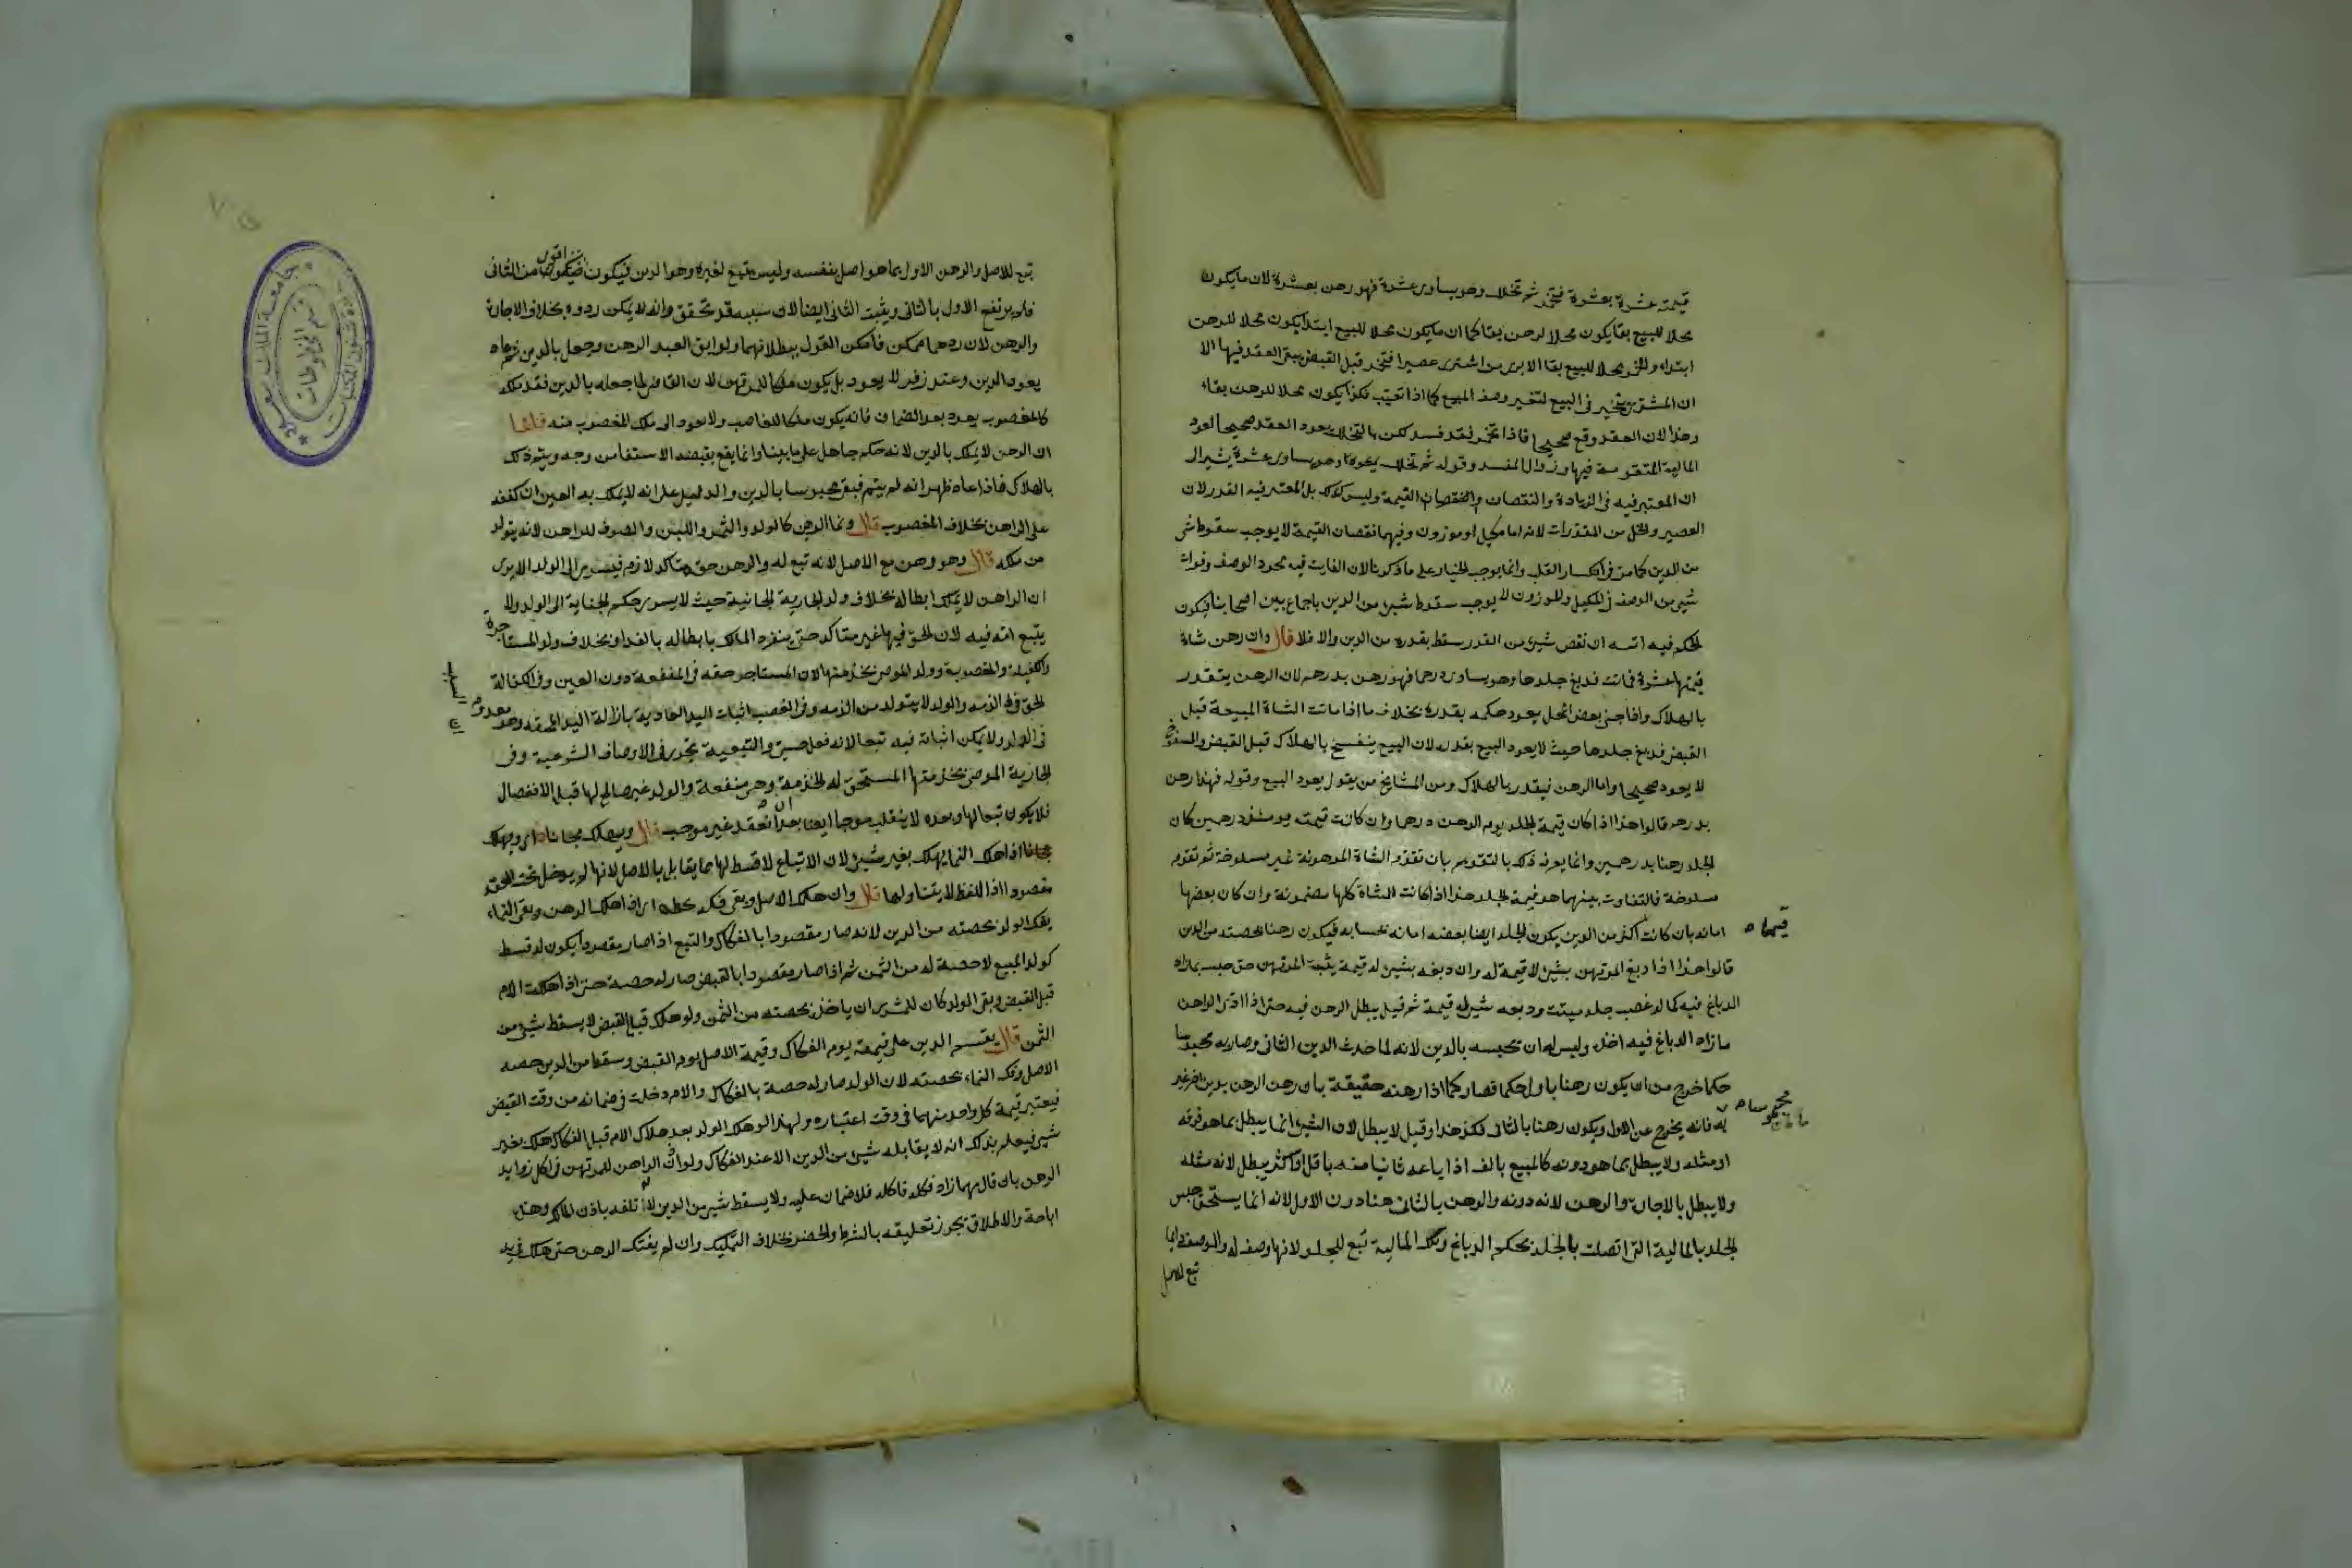 قيمته عشرة بعشرة فتخمر ثم تخلل وهو يساوى عشرة فهو رهن بعشرة لان ما يكون
محلا للبيع بقا يكون محلا للرهن بقا كما ان ما يكون محلا للبيع ابتدا يكون محلا للرهن
ابتداء والخمر محلا للبيع بقا الا يرى من اشترى عصيرا فتخمر قبل القبض يبقى العقد فيها الا
ان المشترى يتخير فى البيع لتغير وصف المبيع كما اذا تعيب فكذا يكون محلا للرهن بقاء
وهذا لان العقد وقع صحيحا فاذا تخمر فقد فسد لكن بالتخلل يعود العقد صحيحا لعود
المالية المتقومة فيها وزوال المفسد وقوله ثم تخلل وهو يساوى عشرة يشير الى
ان المعتبر فيه فى الزيادة والنقصان القيمة وليس كذلك بل المعتبر فيه القدر لان
العصير والخل من المقدرات لانه اما مكيل او موزون وفيهما نقصان القيمة لا يوجب سقوط شى
من الدين كما مر فى انكسار القلب وانما يوجب الخيار على ما ذكرنا لان الفايت فيه مجرد الوصف وفوات
شيء من الوصف فى المكيل والموزون لا يوجب سقوط شيء من الدين باجماع بين اصحابنا فيكون
الحكم فيه انه ان نقص شيء من القدر سقط بقدره من الدين والا فلا قال وان رهن شاة
قيمتها عشرة فماتت فدبغ جلدها وهو يساوى درهما فهو رهن بدرهم لان الرهن يتقرر
بالهلاك واذا حيي بعض المحل يعود حكمه بقدره بخلاف ما اذا ماتت الشاة المبيعة قبل
القبض فدبغ جلدها حيث لا يعود البيع بقدره لان البيع ينفسخ بالهلاك قبل القبض والمنفسخ
لا يعود صحيحا واما الرهن فيتقرر بالهلاك ومن المشايخ من يقول يعود البيع وقوله فهذا رهن
بدرهم قالوا هذا اذا كان قيمة الجلد يوم الرهن درهما وان كانت قيمته يومئذ درهمين كان
الجلد رهنا بدرهمين وانما يعرف ذلك بالتقويم بان تقوم الشاة المرهونة غير مسلوخة ثم تقوم
مسلوخة فالتفاوت بينهما هو قيمة الجلد هذا اذا كانت الشاة كلها مضمونة وان كان بعضها
امانة بان كانت اكثر من الدين يكون الجلد ايضا بعضه امانة بحسابه فيكون رهنا بحصته من الدين
قيمتها
قالوا هذا اذا دبغ المرتهن بشيء لا قيمة له وان دبغه بشيء له قيمة يثبت للمرتهن حق حبسه بما زاد
الدباغ فيه كما لو غصب جلد ميتة ودبغه بشيء له قيمة ثم قيل يبطل الرهن فيه حتى اذا ادى الراهن
ما زاد الدباغ فيه اخذه وليس له ان يحبسه بالدين لانه لما حدث الدين الثانى وصار به محبوسا
حكما خرج من ان يكون رهنا بالاول حكما فصار كما اذا رهنه حقيقة بان رهن الرهن بدين اخر غير
له فانه يخرج عن الاول ويكون رهنا بالثانى فكذا هذا وقيل لا يبطل لان الشيء انما يبطل بما هو فوقه
او مثله ولا يبطل بما هو دونه كالمبيع بالف اذا باعه ثانيا منه باقل او اكثر يبطل لانه مثله
ولا يبطل بالاجارة والرهن لانه دونه والرهن بالثانى هنا دون الاول لانه انما يستحق حبس
الجلد بالمالية التى اتصلت بالجلد بحكم الدباغ وتلك المالية تبع للجلد لانها وصف له والوصف دايما
تبع للاصل
تبع للاصل والرهن الاول بما هو اصل بنفسه وليس بتبع لغيره وهو الدين فيكون اقوى من الثانى
فلم يرتفع الاول بالثانى ويثبت الثانى ايضا لان سببه قد تحقق وانه لا يمكن رده بخلاف الاجارة
والرهن لان ردهما ممكن فامكن القول ببطلانهما ولو ابق العبد الرهن وجعل بالدين ثم عاد
يعود الدين وعند زفر لا يعود بل يكون ملكا للمرتهن لان القاضى لما جعله بالدين فقد ملكه
كالمغصوب يعود بعد الضمان فانه يكون ملكا للغاصب ولا يعود الى ملك المغصوب منه قلنا
ان الرهن لا يملك بالدين لانه حكم جاهلى على ما بينا وانما يقع بقبضه الاستيفا من وجه ويتم ذلك
بالهلاك فاذا عاد ظهر انه لم يتم فبقى محبوسا بالدين والدليل على انه لا يملك به العين ان كفنه
على الراهن بخلاف المغصوب قال ونما الرهن كالولد والثمر واللبن والصوف للراهن لانه يتولد
من ملكه قال وهو رهن مع الاصل لانه تبع له والرهن حق متاكد لازم فيسرى الى الولد الا يرى
ان الراهن لا يملك ابطاله بخلاف ولد الجارية الجانية حيث لا يسرى حكم الجناية الى الولد ولا
يتبع امه فيه لان الحق فيها غير متاكد حتى ينفرد المالك بابطاله بالفداء وبخلاف ولد المستاجرة
والكفيلة والمغصوبة وولد الموصى بخدمتها لان المستاجر حقه فى المنفعة دون العين وفى الكفالة
الحق فى الذمة والولد لا يتولد من الذمة وفى الغصب اثبات اليد العادية بازالة اليد المحقة وهو معدوم
فى الولد ولا يمكن اثباته فيه تبعا لانه فعل حسى والتبعية تجرى فى الاوصاف الشرعية وفى
الجارية الموصى بخدمتها المستحق له الخدمة وهى منفعة والولد غير صالح لها قبل الانفصال
فلا يكون تبعا لها وبعده لا ينقلب موجبا ايضا بعد ان انعقد غير موجب قال ويهلك مجانا اى ويهلك
اذا هلك النما يهلك بغير شيء لان الاتباع لا قسط لها مما يقابل بالاصل لانها لم يدخل تحت العقد
مقصودا اذ اللفظ لا يتناولها قال وان هلك الاصل وبقى فك بحظه اى اذا هلك الرهن وبقى النماء
يفك الولد بحصته من الدين لانه صار مقصودا بالفكاك والتبع اذا صار مقصودا يكون له قسط
كولد المبيع لا حصة له من الثمن ثم اذا صار مقصودا بالقبض صار له حصة حتى اذا هلكت الام
قبل القبض وبقى الولد كان للمشترى ان ياخذ بحصته من الثمن ولو هلك قبل القبض لا يسقط شيء من
الثمن قال يقسم الدين على قيمته يوم الفكاك وقيمة الاصل يوم القبض وسقط من الدين حصه
الاصل وفك النماء بحصته لان الولد صار له حصة بالفكاك والام دخلت فى ضمانه من وقت القبض
فيعتبر قيمة كل واحد منهما فى وقت اعتباره ولهذا لو هلك الولد بعد هلاك الام قبل الفكاك هلك بغير
شيء فيعلم بذلك انه لا يقابله شيء من الدين الا عند الفكاك ولو اذن الراهن للمرتهن فى اكل زوايد
الرهن بان قال مهما زاد فكله فاكله فلا ضمان عليه ولا يسقط شيء من الدين لانه اتلفه باذن المالك وهذه
اباحة والاطلاق يجوز تعليقه بالشرط والخطر بخلاف التمليك وان لم يفتك الرهن حتى هلك فى يد